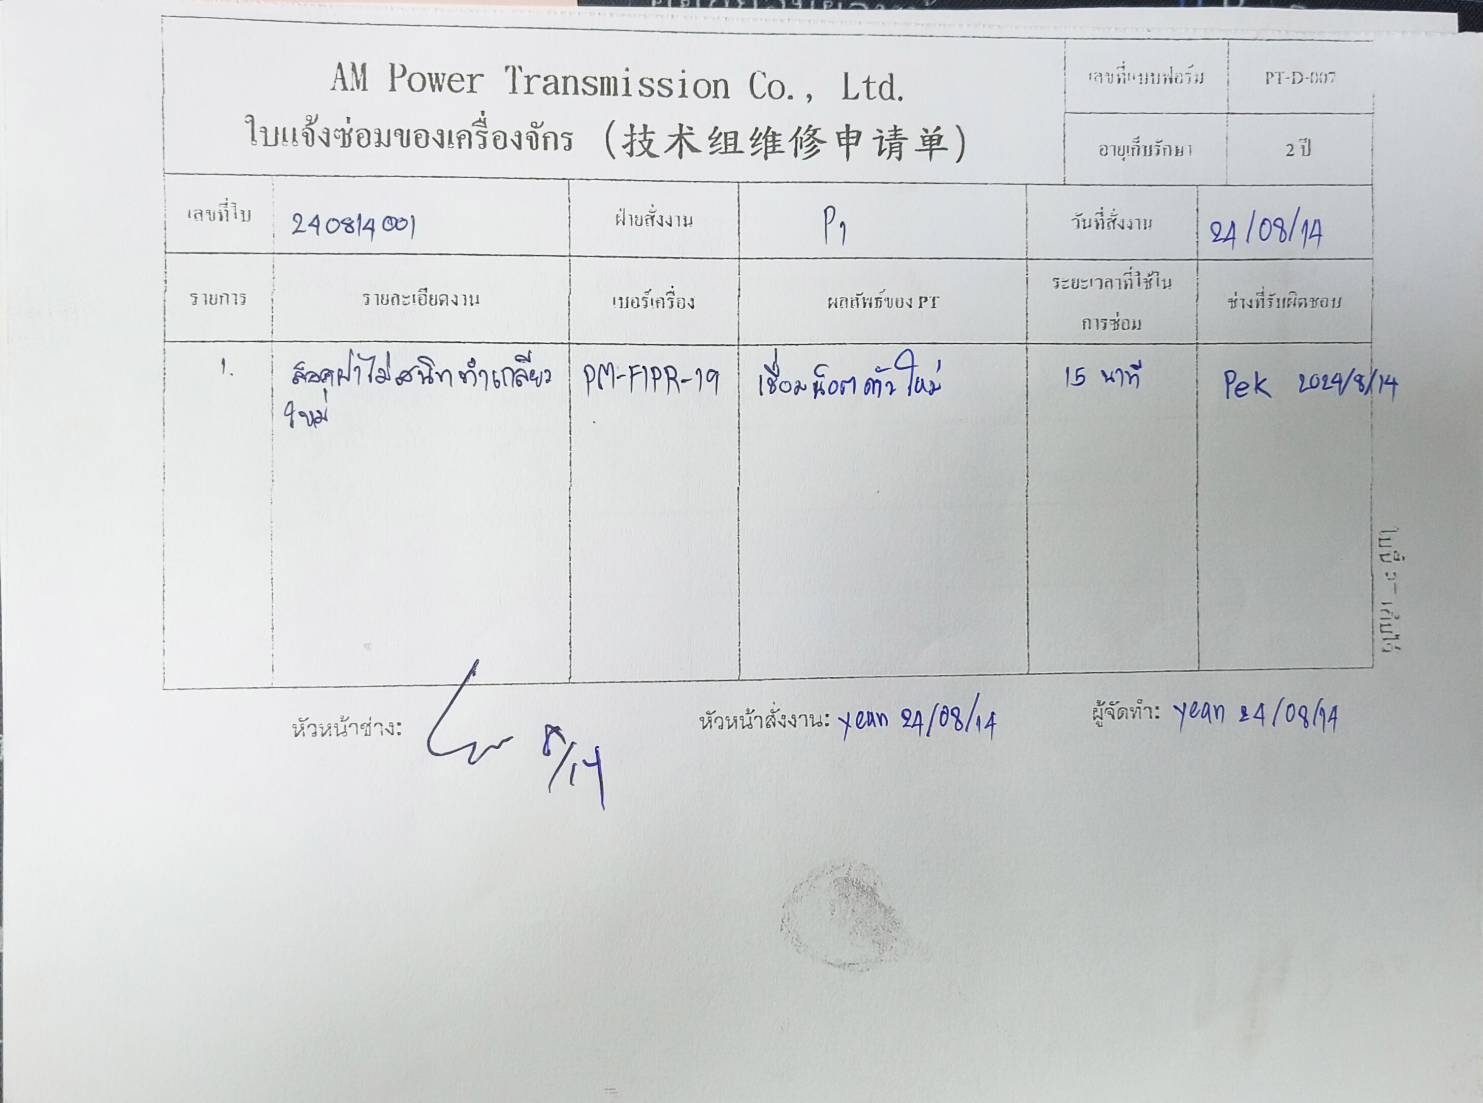 AM Power Transmission Co., Ltd.
ใบแจ้งซ่อมของเครื่องจักร (技术组维修申请单)
เลขที่แบบฟอร์ม PT-D-007
อายุเก็บรักษา 2 ปี
เลขที่ใบ 240814001 ฝ่ายสั่งงาน P1 วันที่สั่งงาน 24/08/14
รายการ รายละเอียดงาน เบอร์เครื่อง ผลลัพธ์ของ PT ระยะเวลาที่ใช้ใน ช่างที่รับผิดชอบ
การซ่อม
1. ล็อคฝาไม่สนิท ทำเกลียว PM-F1PR-19 เชื่อมน็อตตัวใหม่ 15 นาที Pek 2024/8/14
ใหม่
หัวหน้าช่าง: 8/14 หัวหน้าสั่งงาน: yean 24/08/14 ผู้จัดทำ: yean 24/08/14